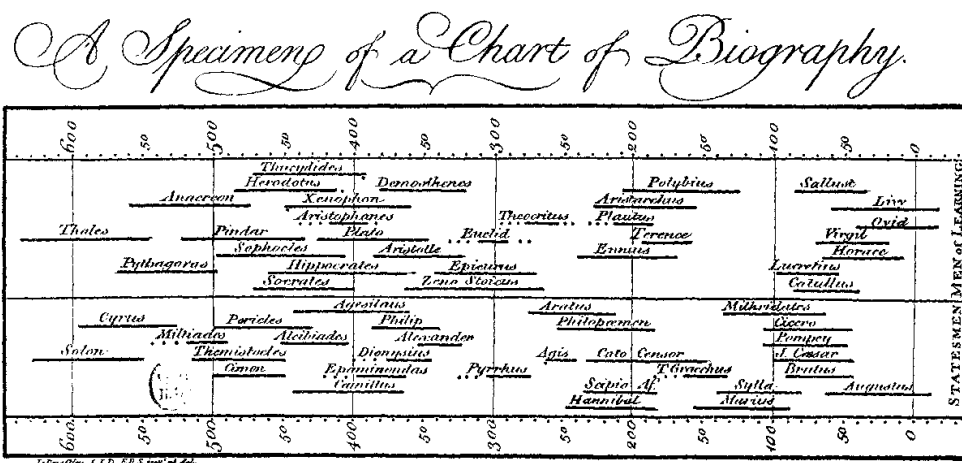 A Specimen of a Chart of Biography.
600 50 500 50 400 50 300 50 200 50 100 50 0
Thucydides
Herodotus Demosthenes Polybius Sallust
Anacreon Xenophon Aristarchus Livy
Aristophanes Theocritus Plautus Ovid
Thales Pindar Plato Euclid Terence Virgil
Sophocles Aristotle Ennius Horace
Pythagoras Hippocrates Epicurus Lucretius
Socrates Zeno Stoicus Catullus
MEN of LEARNING
Agesilaus Aratus Mithridates
Cyrus Pericles Philip Philopœmen Cicero
Miltiades Alcibiades Alexander Pompey
Solon Themistocles Dionysius Agis Cato Censor J. Cæsar
Cimon Epaminondas Pyrrhus T. Gracchus Brutus
Camillus Scipio Af. Sylla Augustus
Hannibal Marius
STATESMEN
600 50 500 50 400 50 300 50 200 50 100 50 0